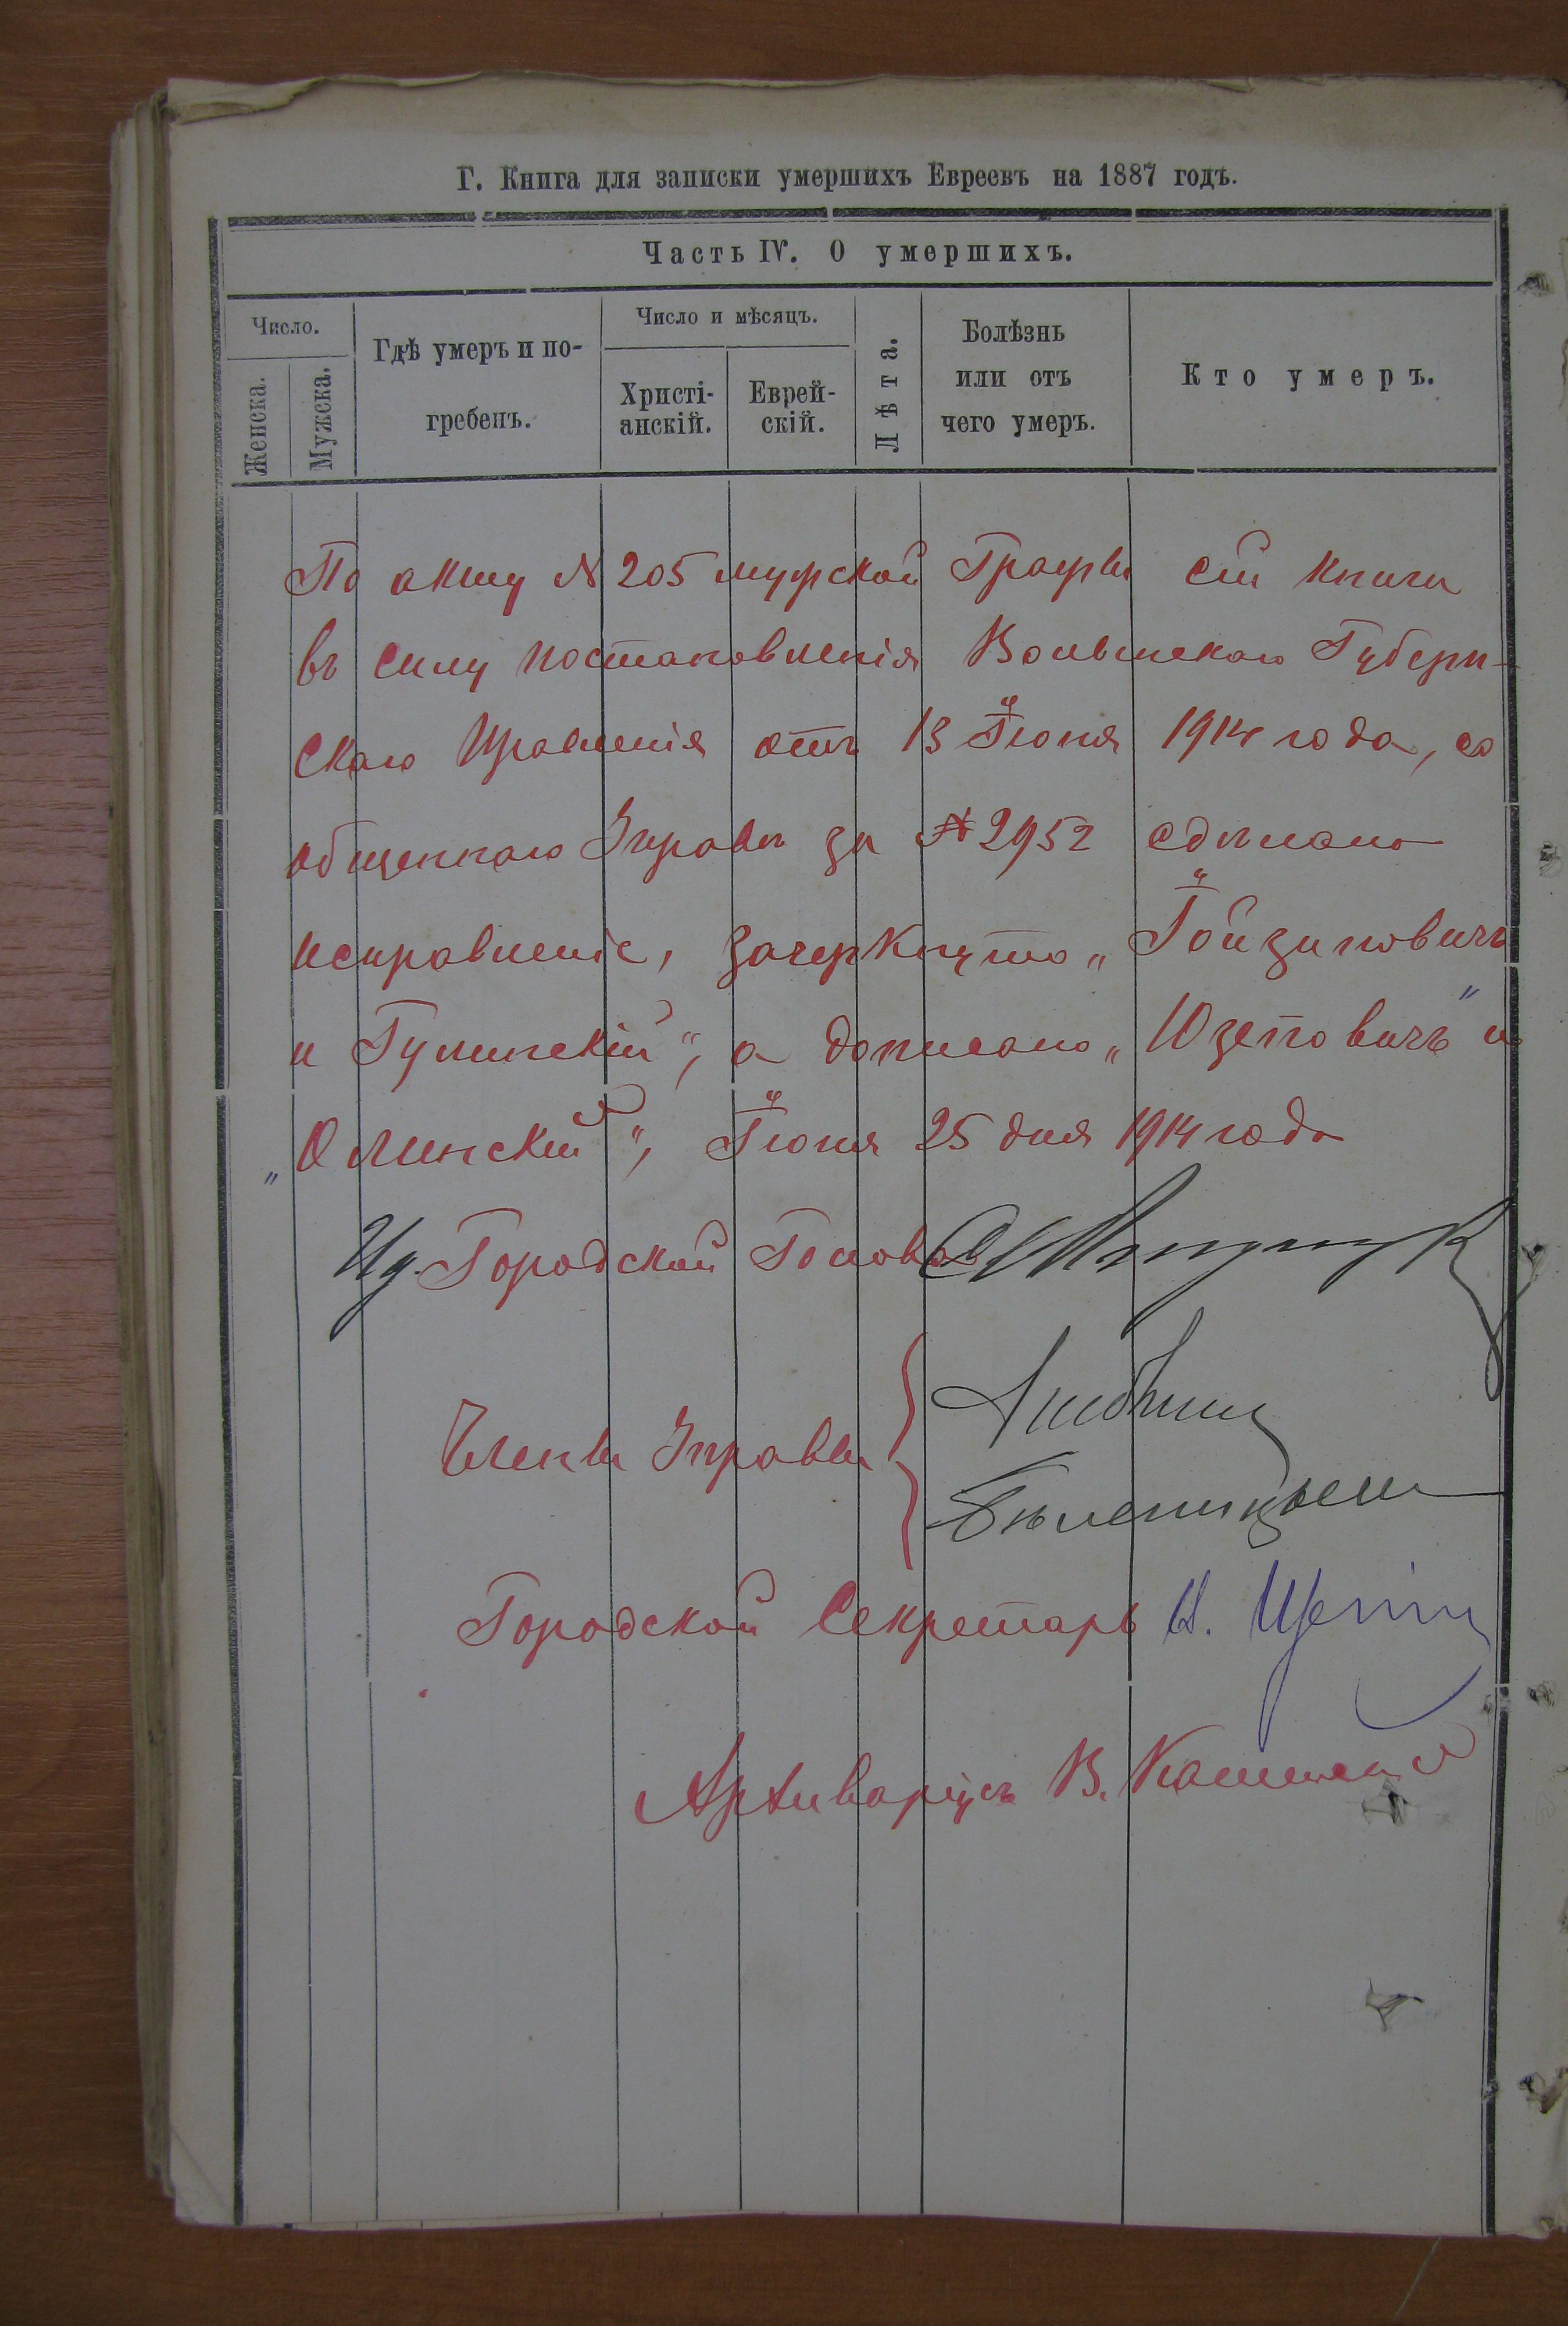 Г. Книга для записки умершихъ Евреевъ на 1887 годъ.
Часть IV. О умершихъ.
Число.
Женска.
Мужска.
Гдѣ умеръ и по-
гребенъ.
Число и мѣсяцъ.
Христі-
анскій.
Еврей-
скій.
Лѣта.
Болѣзнь
или отъ
чего умеръ.
Кто умеръ.
По акту № 205 мужской Графы сей книги
въ силу постановленія Волынскаго Губерн-
скаго Правленія отъ 13 Іюня 1914 года, со
общеннаго Управѣ за № 2952 сдѣлано
исправленіе, зачеркнуто „Іойзиповичъ
и Гулинскій“, а дописано „Юзеповичъ“ и
„Олинскій“, Іюня 25 дня 1914 года
Ид. Городской Голова
Члены Управы
Городской Секретарь Н.
Архиваріусъ В.